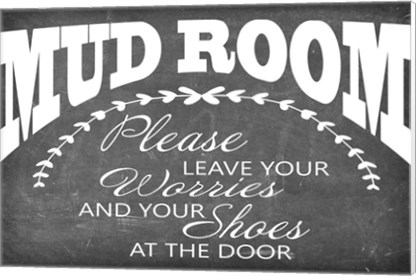 MUD ROOM
Please
LEAVE YOUR
Worries
AND YOUR
Shoes
AT THE DOOR